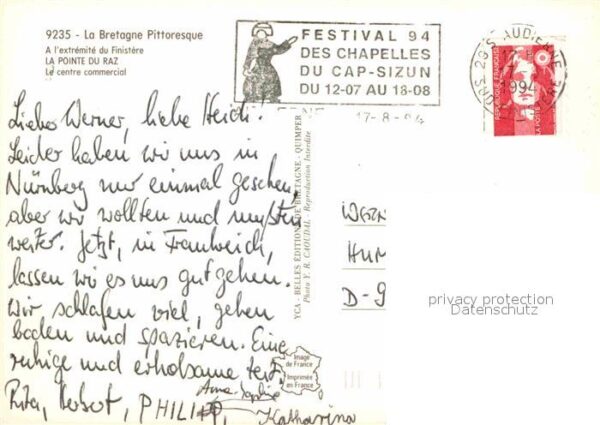 9235 - La Bretagne Pittoresque
A l'extrémité du Finistère
LA POINTE DU RAZ
Le centre commercial
FESTIVAL 94
DES CHAPELLES
DU CAP-SIZUN
DU 12-07 AU 18-08
29 S AUDIERNE
1994
RÉPUBLIQUE FRANÇAISE
LA POSTE
17-8-94
Lieber Werner, liebe Heidi!
Leider haben wir uns in
Nürnberg nur einmal gesehen,
aber wir wollten und mußten
weiter. Jetzt, in Frankreich,
lassen wir es uns gut gehen.
Wir schlafen viel, gehen
baden und spazieren. Eine
ruhige und erholsame Zeit.
Rita, Herbert, PHILIPP,
Anna-Sophie
Katharina
YCA - BELLES ÉDITIONS DE BRETAGNE - QUIMPER
Photo Y. R. CAOUDAL. Reproduction Interdite
Image
de France
Imprimée
en France
WERN
HUM
D-9
privacy protection
Datenschutz